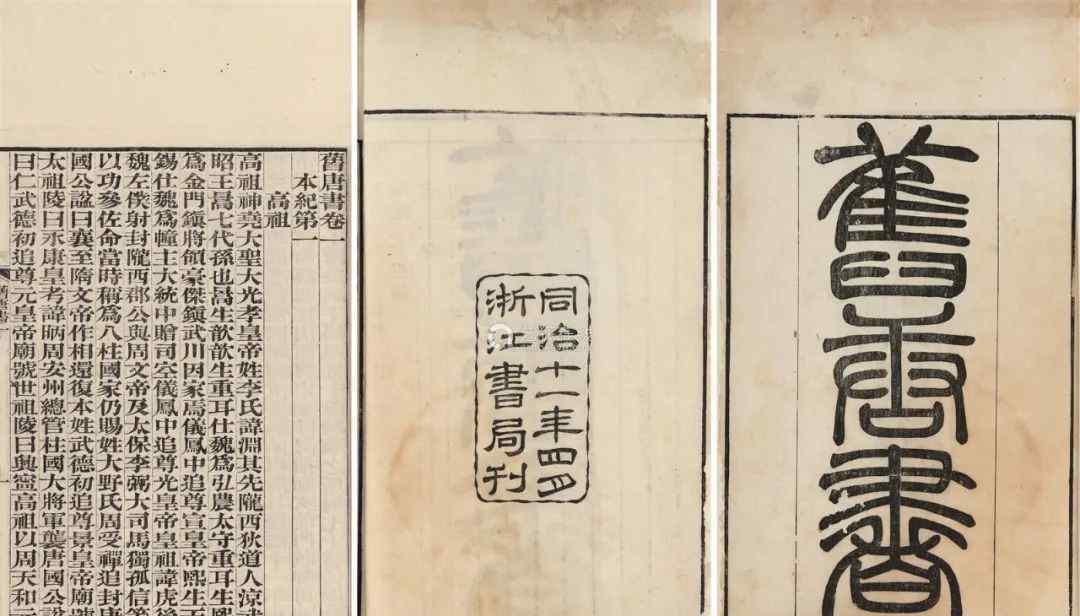 舊唐書
同治十一年四月
浙江書局刊
舊唐書卷一
本紀第一
高祖
高祖神堯大聖大光孝皇帝姓李氏諱淵其先隴西狄道人涼武
昭王暠七代孫也暠生歆歆生重耳仕魏爲弘農太守重耳生熙
爲金門鎮將領豪傑鎮武川因家焉儀鳳中追尊宣皇帝熙生天
錫仕魏爲幢主大統中贈司空儀鳳中追尊光皇帝皇祖諱虎後
魏左僕射封隴西郡公與周文帝及太保李弼大司馬獨孤信等
以功參佐命當時稱爲八柱國家仍賜姓大野氏周受禪追封唐
國公諡曰襄至隋文帝作相還復本姓武德初追尊景皇帝廟號
太祖陵曰永康皇考諱昞周安州總管柱國大將軍襲唐國公諡
曰仁武德初追尊元皇帝廟號世祖陵曰興寧高祖以周天和元